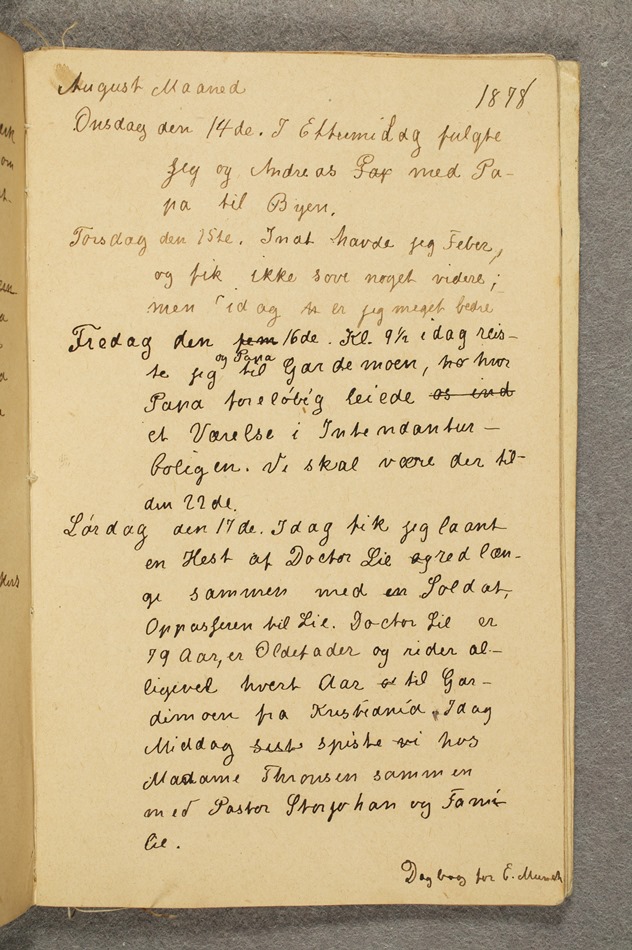 August Maaned 1878
Onsdag den 14de. I Ettermiddag fulgte
jeg og Andreas Pap med Pa-
pa til Byen.
Torsdag den 15te. Inat havde jeg Feber,
og fik ikke sove noget videre;
men idag er jeg meget bedre
Fredag den fem 16de. Kl. 9½ idag reis-
te jeg og Papa til Gardemoen, ho hvor
Papa foreløbig leiede os ind
et Værelse i Intendantur-
boligen. Vi skal være der til
den 22de.
Lørdag den 17de. Idag fik jeg laant
en Hest af Doctor Lie og red læn-
ge sammen med en Soldat,
Oppasseren til Lie. Doctor Lie er
79 Aar, er Oldefader og rider al-
ligevel hvert Aar til Gar-
dimoen fra Kristiania. Idag
Middag sist spiste vi hos
Madame Thronsen sammen
med Pastor Storjohan og Fami-
lie.
Dagbog for E. Munch